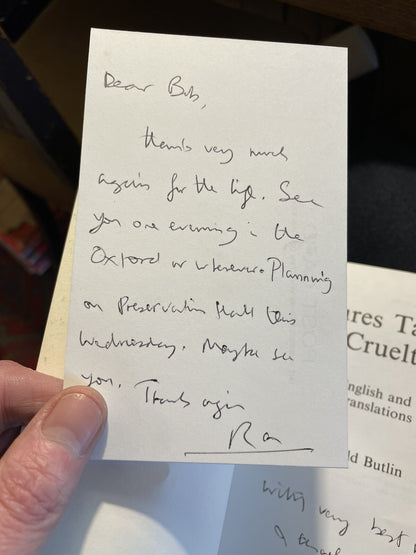 Dear Bob,
thanks very much
again for the lift. See
you one evening in the
Oxford or wherever. Planning
on Preservation Hall this
Wednesday. Maybe see
you. Thanks again
Ron
ures Ta
Cruelt
nglish and
ranslations
ld Butlin
with very best